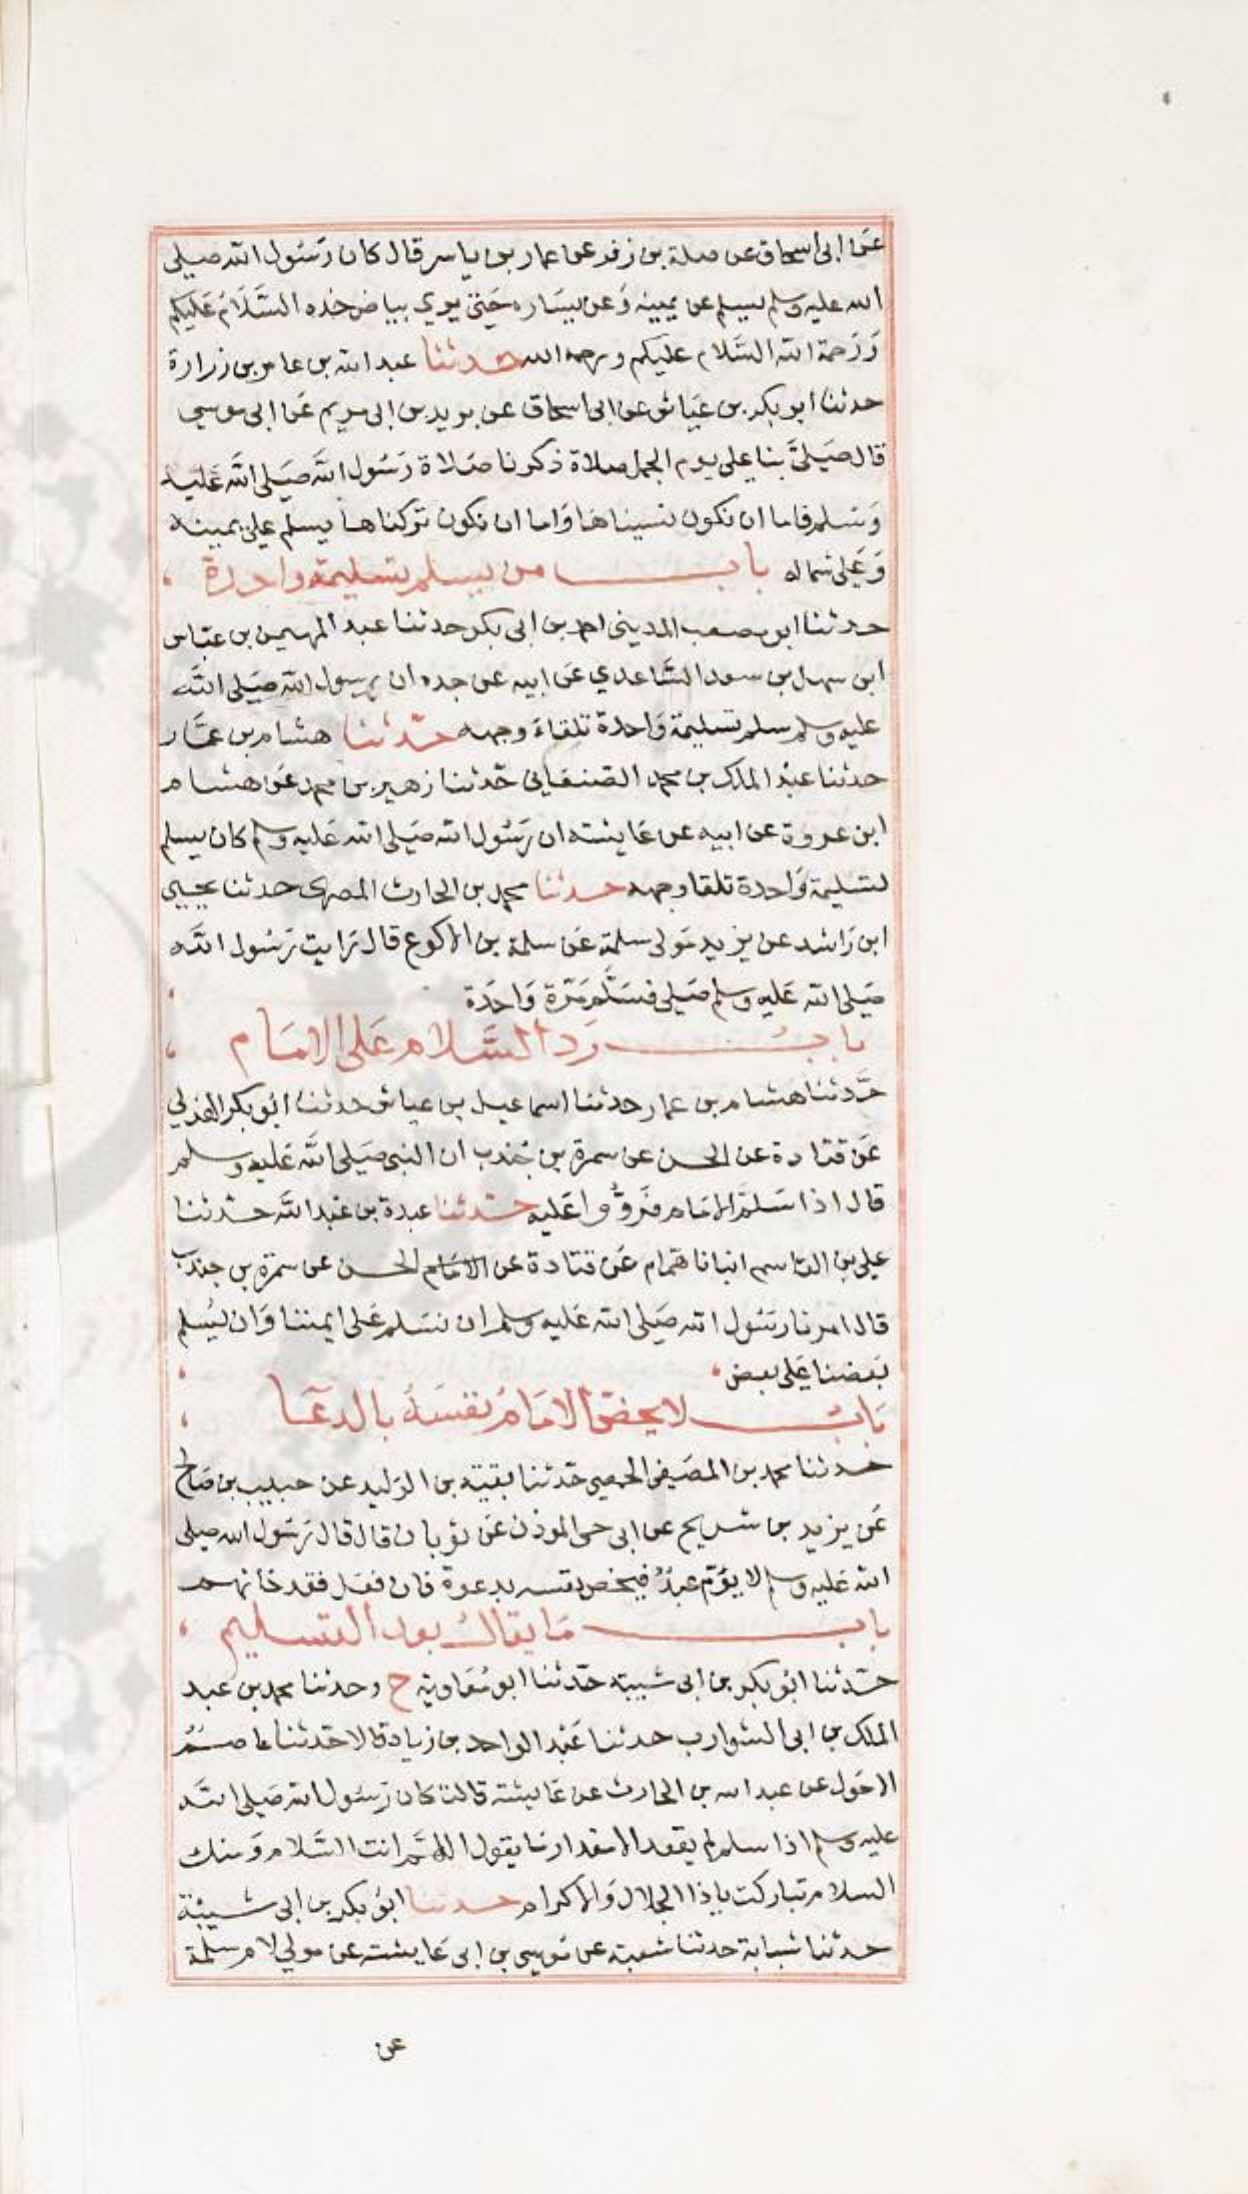 عن ابى اسحاق عن صلة بن زفر عن عمار بن ياسر قال كان رسول الله صلى
الله عليه وسلم يسلم عن يمينه وعن يساره حتى يري بياض خده السلام عليكم
ورحمة الله السلام عليكم ورحمة الله حدثنا عبد الله بن عامر بن زرارة
حدثنا ابو بكر بن عياش عن ابى اسحاق عن بريد بن ابى مريم عن ابى موسى
قال صلى بنا على يوم الجمل صلاة ذكرنا صلاة رسول الله صلى الله عليه
وسلم فاما ان نكون نسيناها واما ان نكون تركناها يسلم على يمينه
وعلى شماله باب من يسلم تسليمة واحدة
حدثنا ابو مصعب المدينى احمد بن ابى بكر حدثنا عبد المهيمن بن عباس
ابن سهل بن سعد الساعدي عن ابيه عن جده ان رسول الله صلى الله
عليه وسلم سلم تسليمة واحدة تلقاء وجهه حدثنا هشام بن عمار
حدثنا عبد الملك بن محمد الصنعانى حدثنا زهير بن محمد عن هشام
ابن عروة عن ابيه عن عايشه ان رسول الله صلى الله عليه وسلم كان يسلم
تسليمة واحدة تلقا وجهه حدثنا محمد بن الحارث المصرى حدثنا يحيى
ابن راشد عن يزيد مولى سلمة عن سلمة بن الاكوع قال رايت رسول الله
صلى الله عليه وسلم صلى فسلم مرة واحدة
باب رد السلام على الامام
حدثنا هشام بن عمار حدثنا اسماعيل بن عياش حدثنا ابو بكر الهذلي
عن قتادة عن الحسن عن سمرة بن جندب ان النبى صلى الله عليه وسلم
قال اذا سلم الامام فردوا عليه حدثنا عبدة بن عبد الله حدثنا
علي بن القاسم انبانا همام عن قتادة عن الامام الحسن عن سمرة بن جندب
قال امرنا رسول الله صلى الله عليه وسلم ان نسلم على ايمتنا وان يسلم
بعضنا على بعض
باب لا يخص الامام نفسه بالدعا
حدثنا محمد بن المصفى الحمصي حدثنا بقية بن الوليد عن حبيب بن صالح
عن يزيد بن شريح عن ابى حى الموذن عن ثوبان قال قال رسول الله صلى
الله عليه وسلم لا يؤم عبد فيخص نفسه بدعوة فان فعل فقد خانهم
باب ما يقال بعد التسليم
حدثنا ابو بكر بن ابى شيبة حدثنا ابو معاوية ح وحدثنا محمد بن عبد
الملك بن ابى الشوارب حدثنا عبد الواحد بن زياد قالا حدثنا عاصم
الاحول عن عبد الله بن الحارث عن عايشة قالت كان رسول الله صلى الله
عليه وسلم اذا سلم لم يقعد الا مقدار ما يقول اللهم انت السلام ومنك
السلام تباركت ياذا الجلال والاكرام حدثنا ابو بكر بن ابى شيبة
حدثنا شبابة حدثنا شعبة عن موسى بن ابى عايشة عن مولي لام سلمة
عن